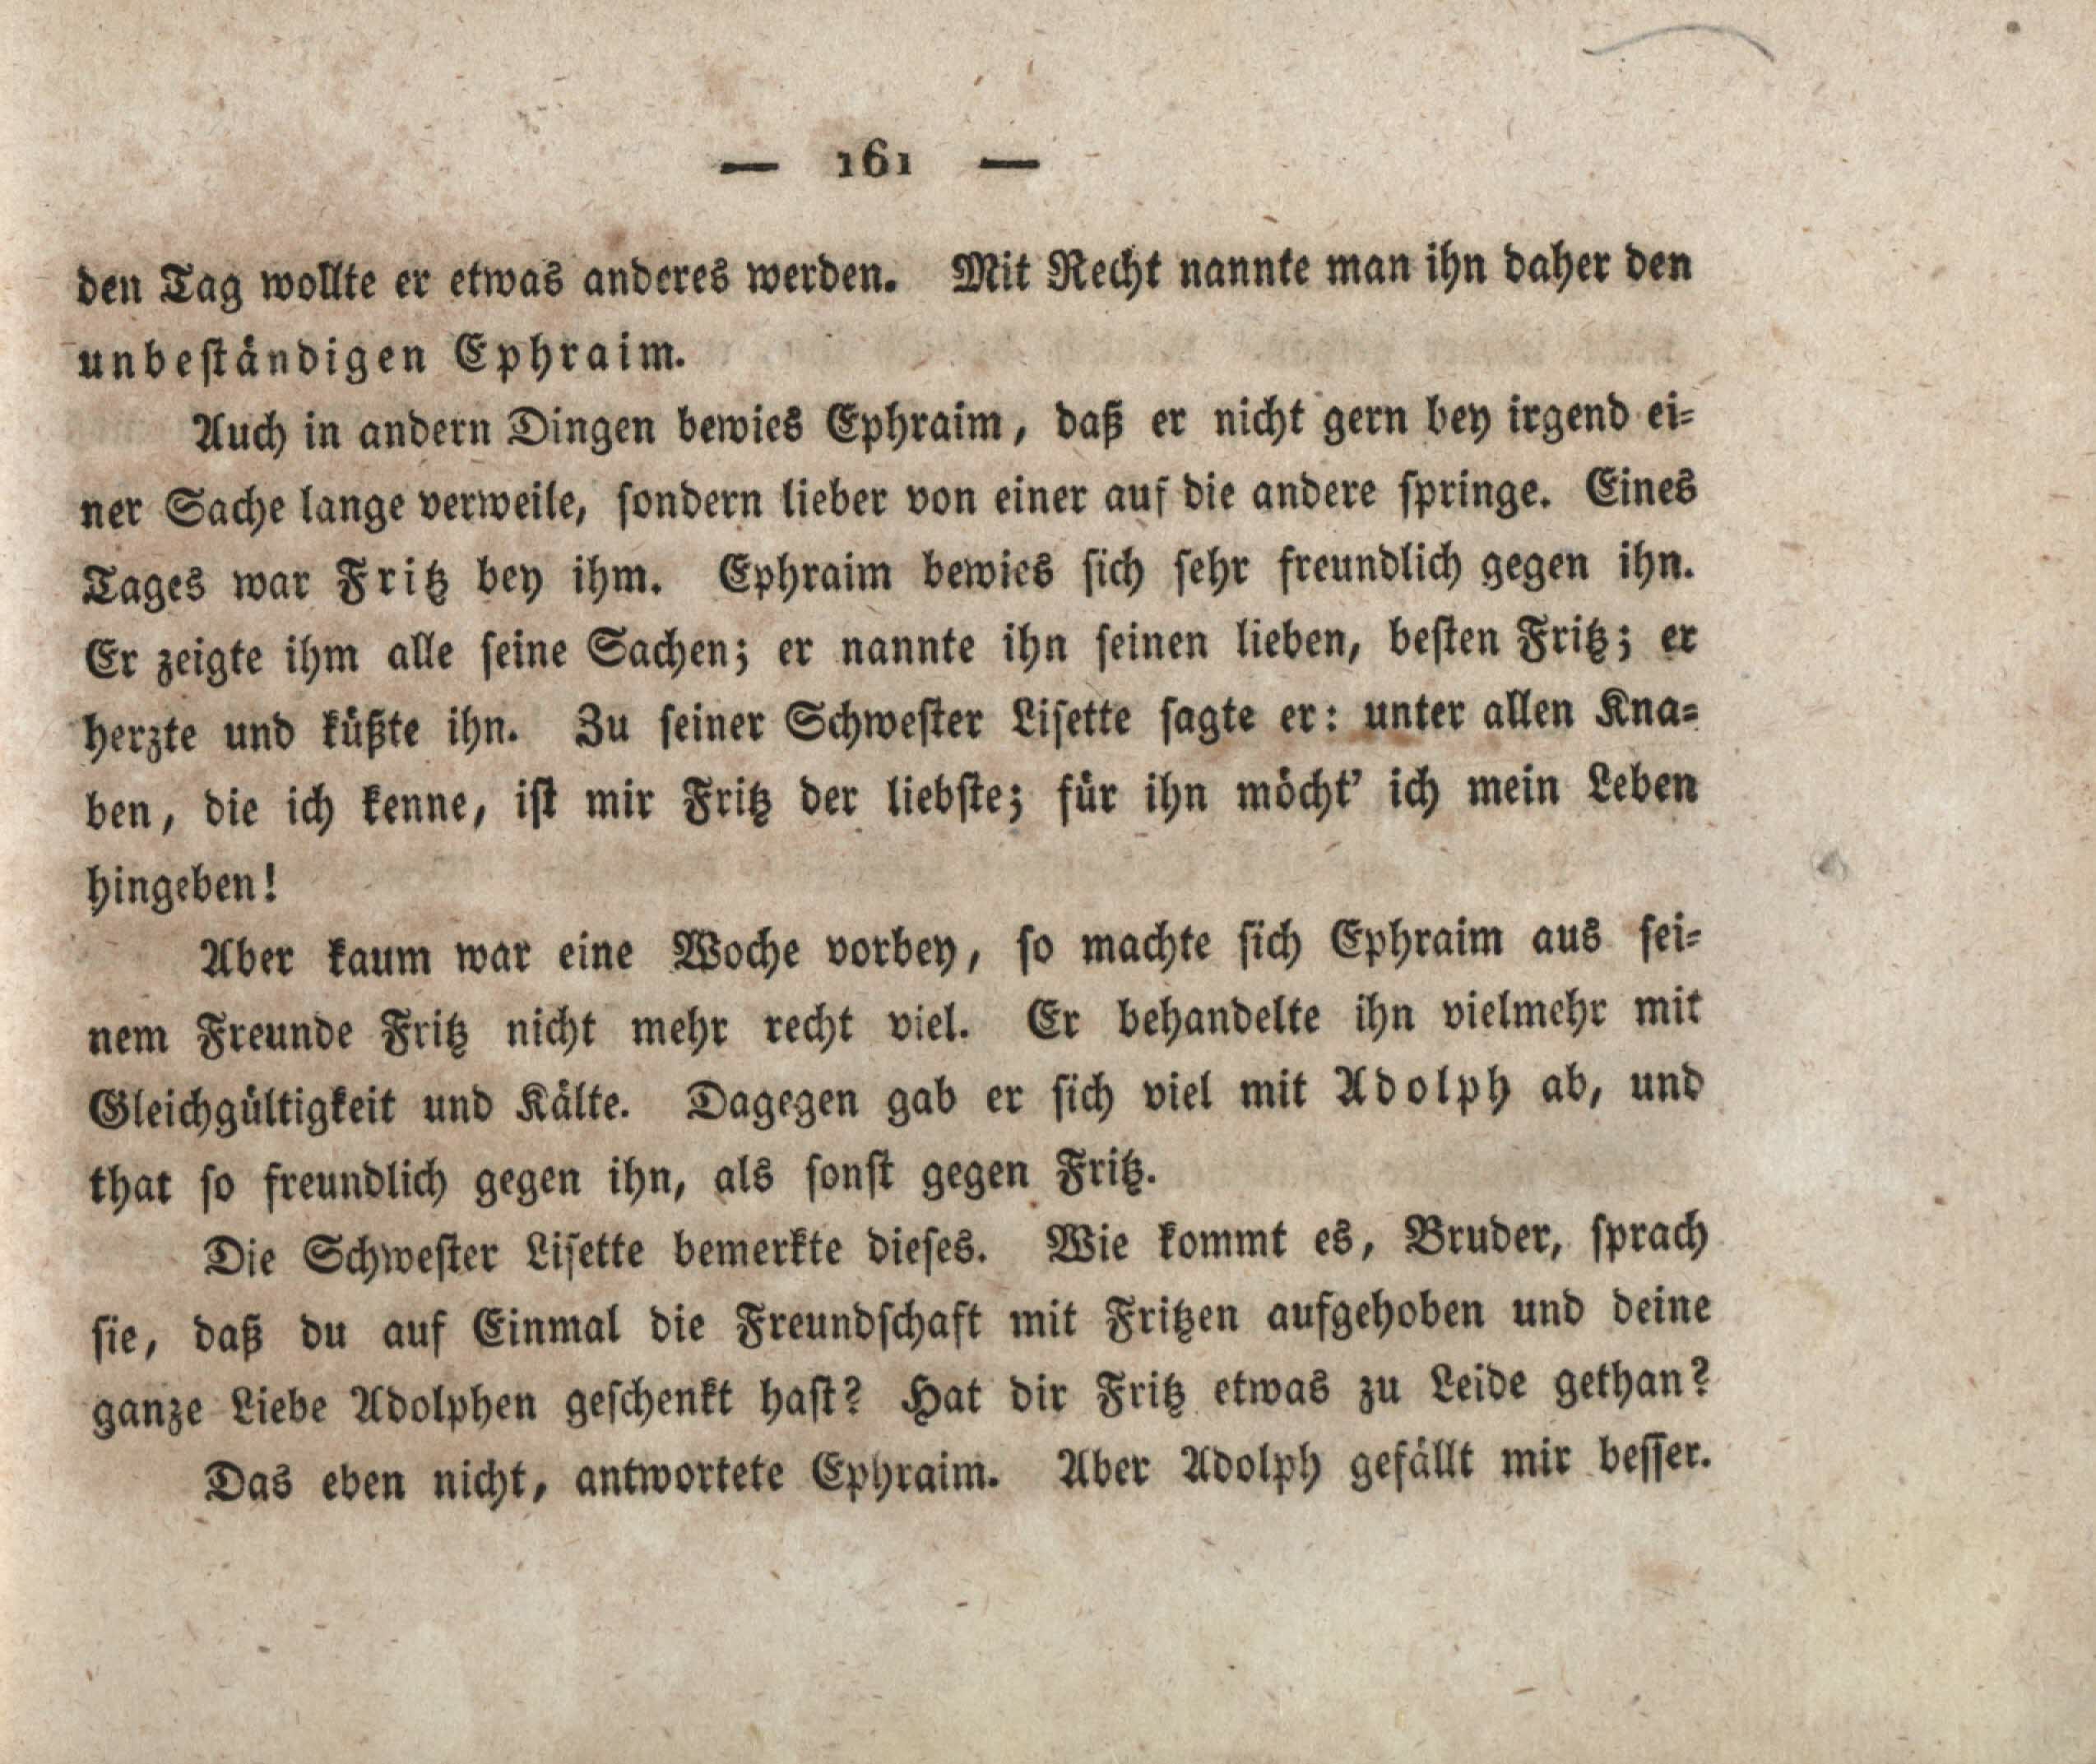 — 161 —
den Tag wollte er etwas anderes werden. Mit Recht nannte man ihn daher den
unbeständigen Ephraim.
Auch in andern Dingen bewies Ephraim, daß er nicht gern bey irgend ei-
ner Sache lange verweile, sondern lieber von einer auf die andere springe. Eines
Tages war Fritz bey ihm. Ephraim bewies sich sehr freundlich gegen ihn.
Er zeigte ihm alle seine Sachen; er nannte ihn seinen lieben, besten Fritz; er
herzte und küßte ihn. Zu seiner Schwester Lisette sagte er: unter allen Kna-
ben, die ich kenne, ist mir Fritz der liebste; für ihn möcht' ich mein Leben
hingeben!
Aber kaum war eine Woche vorbey, so machte sich Ephraim aus sei-
nem Freunde Fritz nicht mehr recht viel. Er behandelte ihn vielmehr mit
Gleichgültigkeit und Kälte. Dagegen gab er sich viel mit Adolph ab, und
that so freundlich gegen ihn, als sonst gegen Fritz.
Die Schwester Lisette bemerkte dieses. Wie kommt es, Bruder, sprach
sie, daß du auf Einmal die Freundschaft mit Fritzen aufgehoben und deine
ganze Liebe Adolphen geschenkt hast? Hat dir Fritz etwas zu Leide gethan?
Das eben nicht, antwortete Ephraim. Aber Adolph gefällt mir besser.